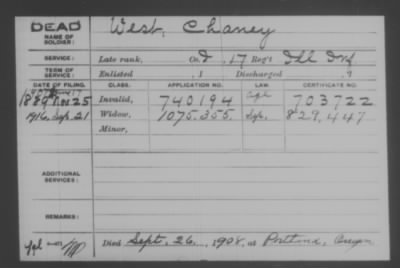 DEAD
NAME OF SOLDIER: West, Chaney
SERVICE: Late rank, Co. D, 17 Reg't Ill Inf
TERM OF SERVICE: Enlisted , 1 Discharged , 1
DATE OF FILING. CLASS. APPLICATION NO. LAW. CERTIFICATE NO.
1889 Nov. 25 Invalid, 740194 703722
1916, Sep. 21 Widow, 1075.355. Sep. 829,447
Minor,
ADDITIONAL SERVICES:
REMARKS:
Died Sept. 26, 1908, at Portland, Oregon